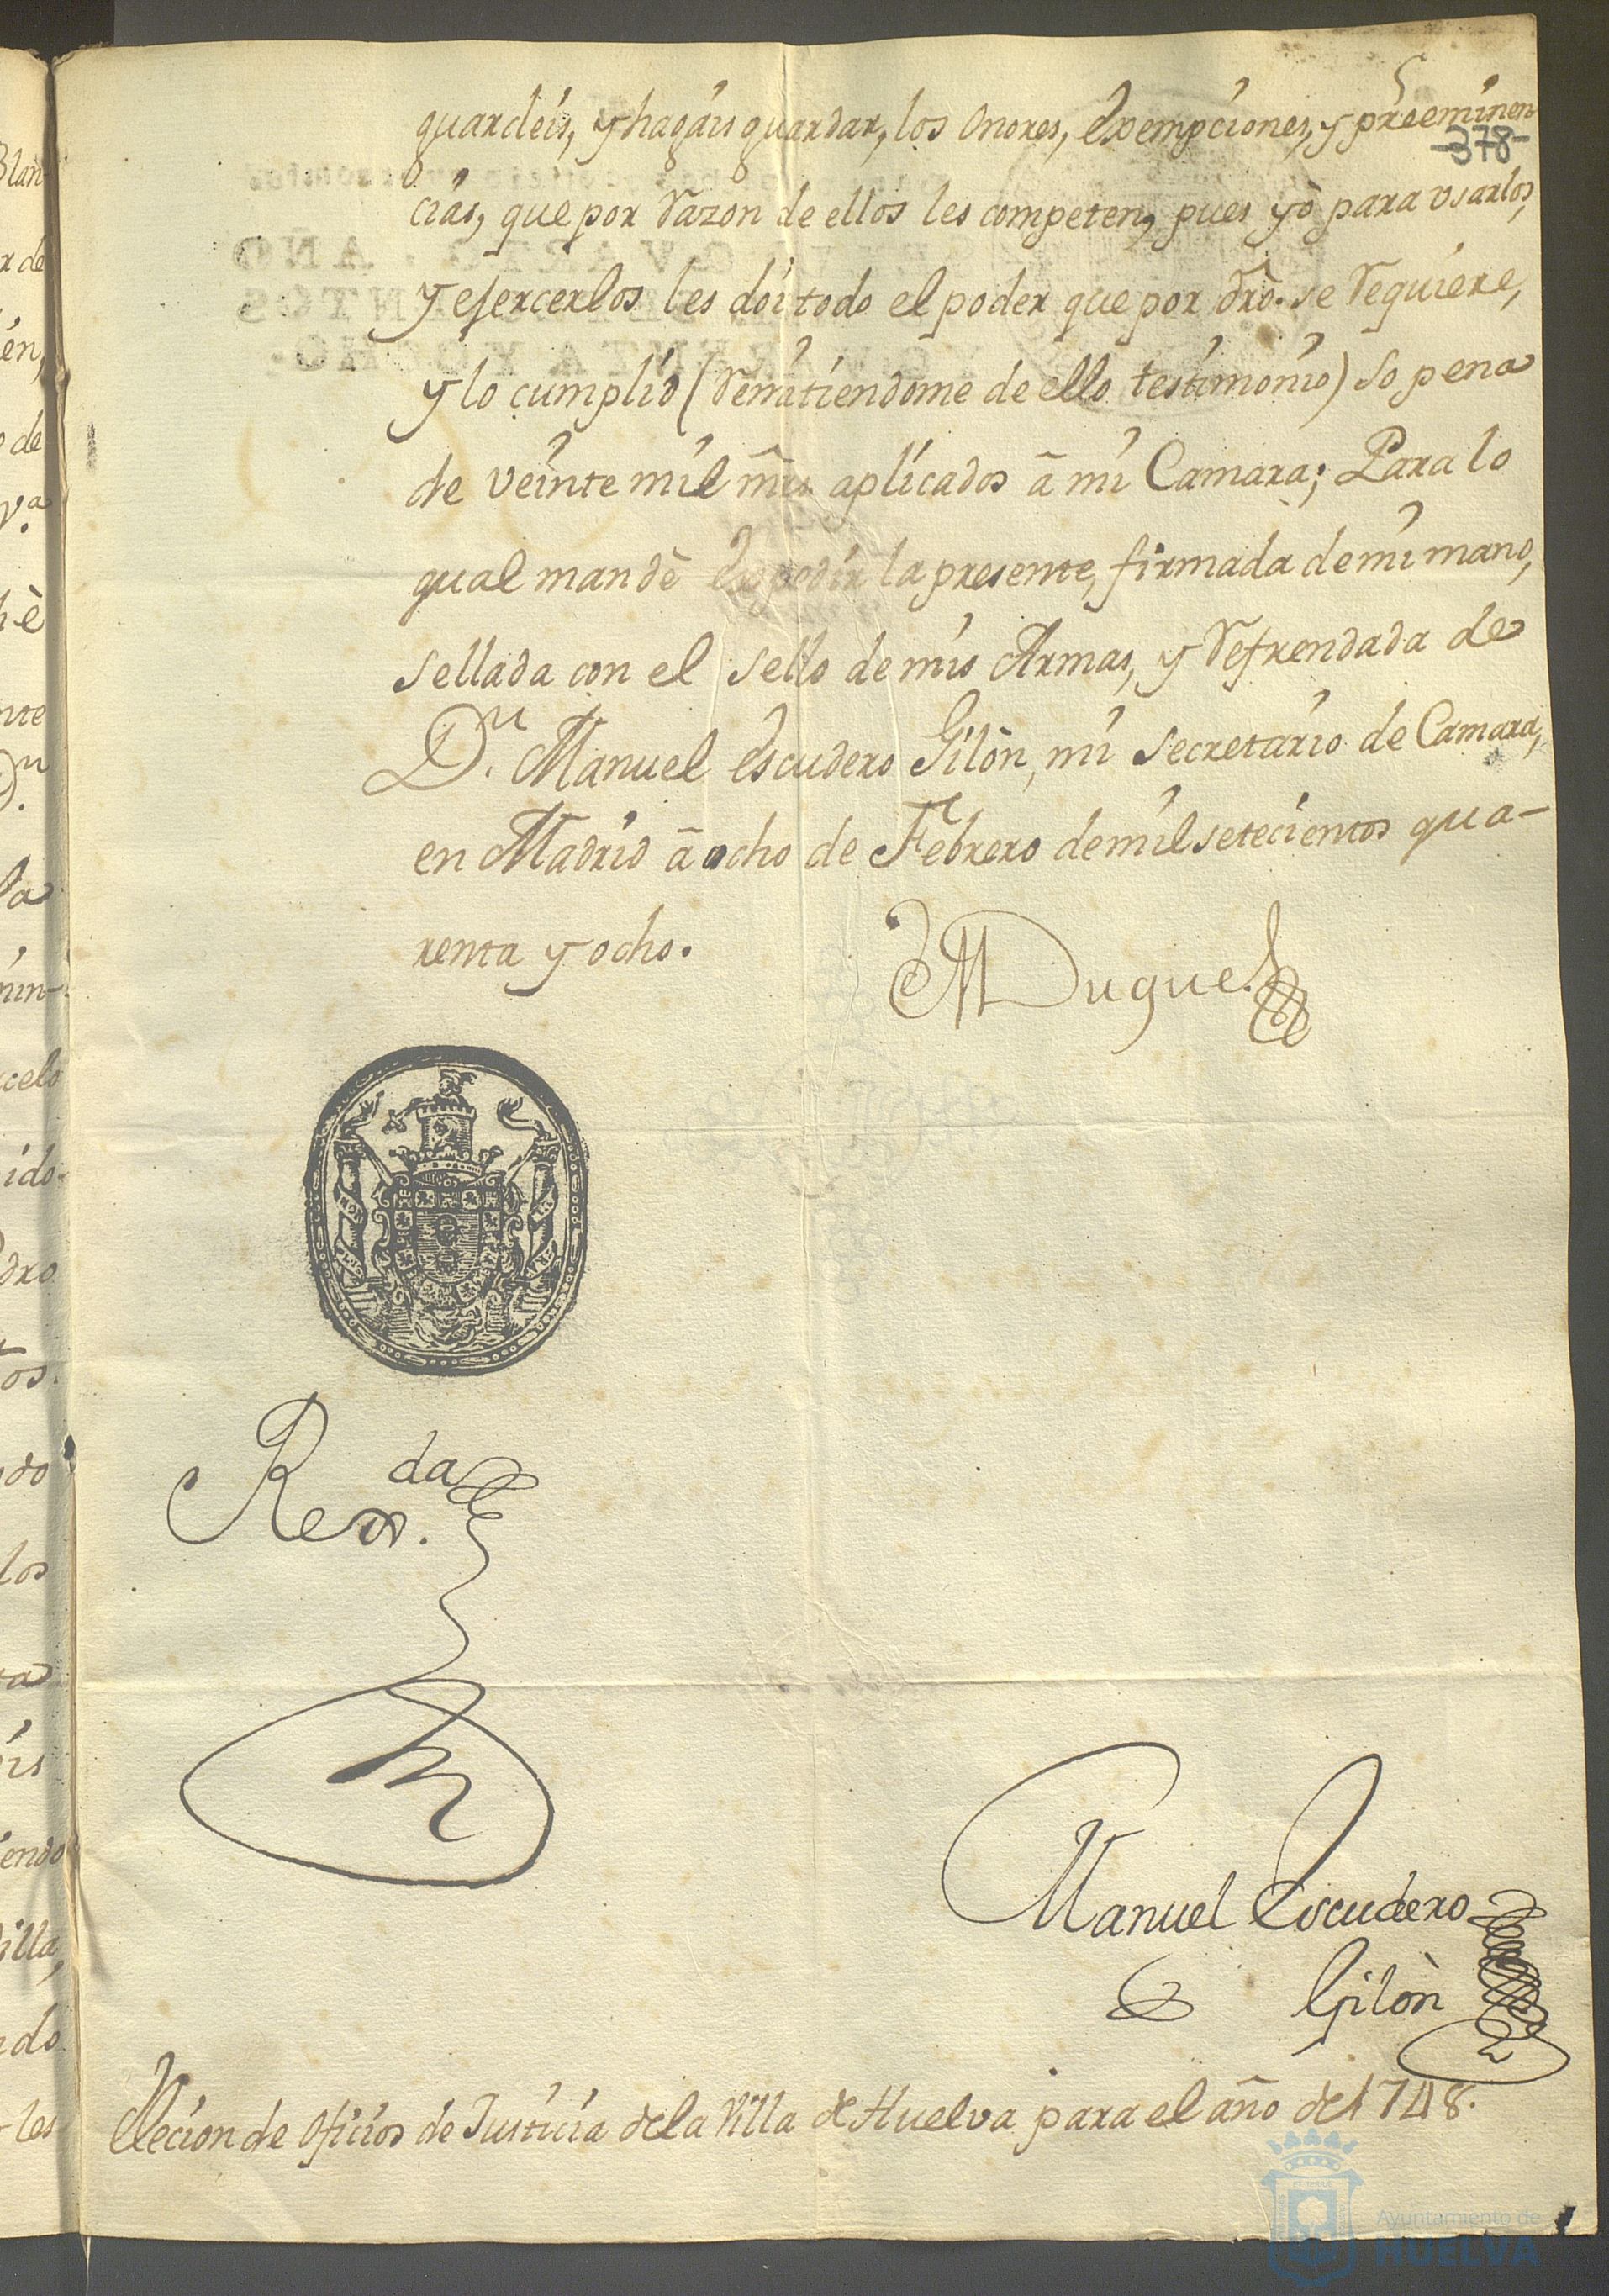 guardeis, y hagais guardar, los Onores, Exempciones, y preeminen
-378-
cias, que por razon de ellos les competen, pues yò para usarlos,
y esercerlos les doi todo el poder que por dro. se requiere,
y lo cumplid (remitiendome de ello testimonio) so pena
de veinte mil mrs. aplicados â mi Camara; Para lo
qual mandè Expedir la presente, firmada de mi mano,
sellada con el sello de mis Armas, y refrendada de
Dn. Manuel Escudero Gilòn, mi secretario de Camara,
en Madrid â ocho de Febrero de mil setecientos qua-
renta y ocho.
El Duque
Rexda.
Manuel Escudero
Gilòn
Eleccion de Oficios de Justicia de la Villa de Huelva para el año de 1748.
Ayuntamiento de
HUELVA